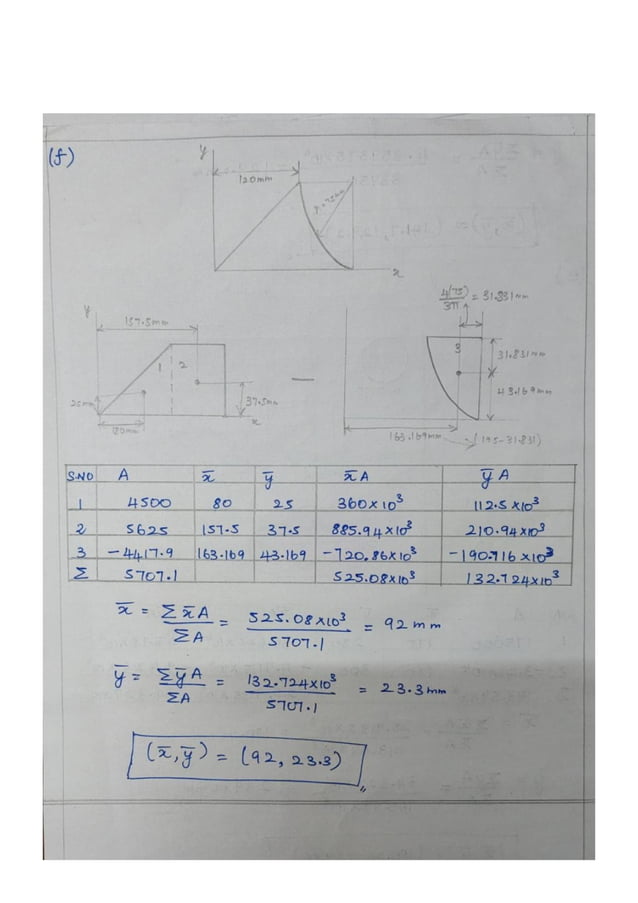 (f)
y
120mm
r=75mm
x
4(75)/3π = 31.831mm
y
157.5mm
1 2
3
31.831mm
25mm
37.5mm
43.169mm
x
163.169mm (195-31.831)
S.NO A x̄ ȳ x̄A ȳA
1 4500 80 25 360×10³ 112.5×10³
2 5625 157.5 37.5 885.94×10³ 210.94×10³
3 -4417.9 163.169 43.169 -720.86×10³ -190.716×10³
Σ 5707.1 525.08×10³ 132.724×10³
x̄ = Σx̄A/ΣA = 525.08×10³/5707.1 = 92mm
ȳ = ΣȳA/ΣA = 132.724×10³/5707.1 = 23.3mm
(x̄,ȳ) = (92, 23.3)